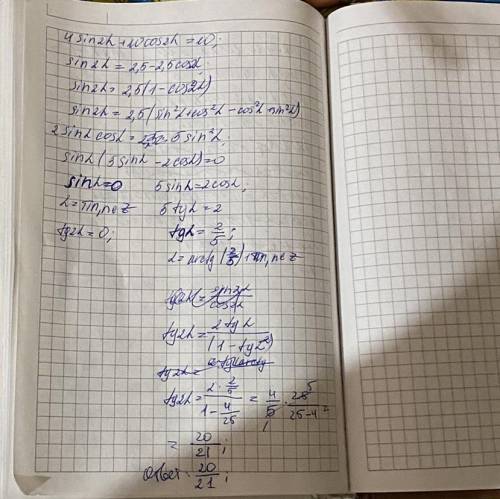 4 sin2α + 10 cos2α = 10;
sin2α = 2,5 - 2,5 cos2α
sin2α = 2,5 (1 - cos2α)
sin2α = 2,5 (sin²α + cos²α - cos²α + sin²α)
2 sinα cosα = 5 sin²α;
sinα (5 sinα - 2 cosα) = 0
sinα = 0 5 sinα = 2 cosα;
α = πn, n ∈ Z 5 tgα = 2
tg2α = 0; tgα = 2/5;
α = arctg (2/5) + πn, n ∈ Z
tg2α = sin2α/cos2α
tg2α = 2 tgα/(1 - tgα²)
tg2α =
tg2α = (2 · 2/5)/(1 - 4/25) = 4/5 · 25/(25-4) =
= 20/21;
Ответ: 20/21;